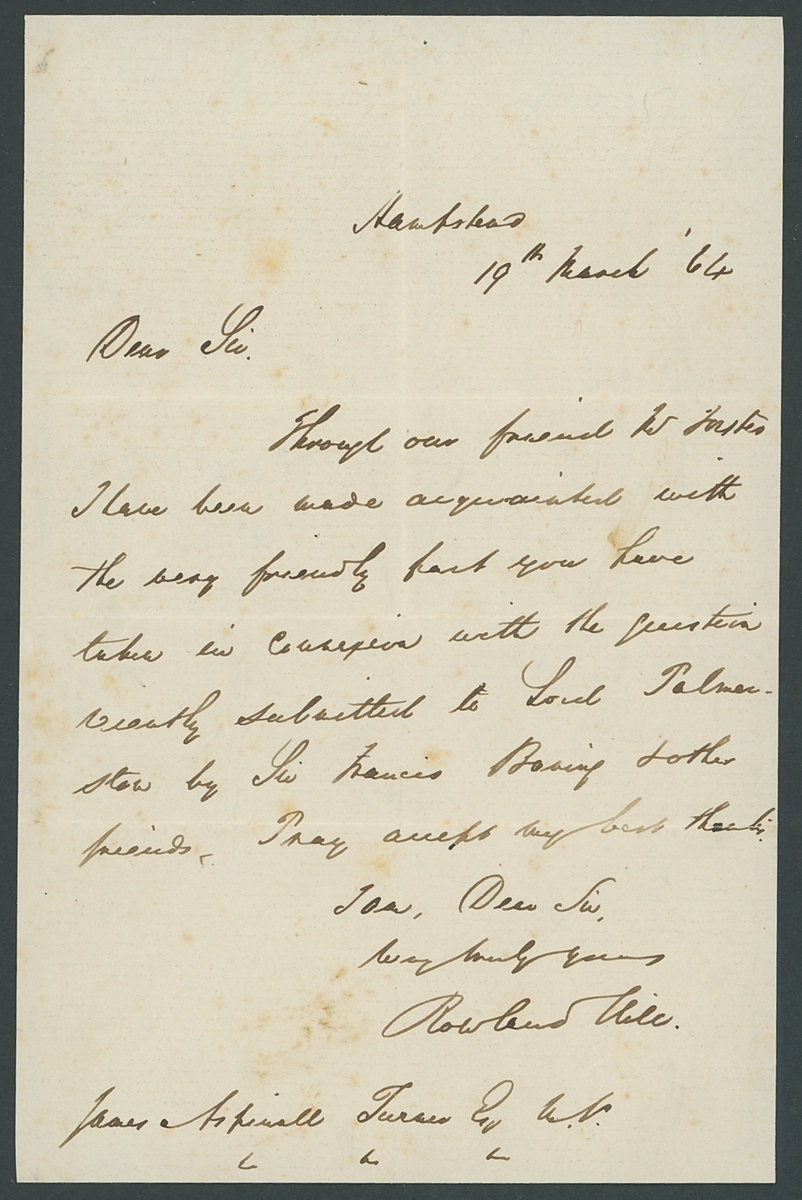 Hampstead
19th March '64
Dear Sir.
Through our friend Mr Forster
I have been made acquainted with
the very friendly part you have
taken in connexion with the question
recently submitted to Lord Palmer-
ston by Sir Francis Baring & other
friends. Pray accept my best thanks.
I am, Dear Sir,
Very truly yours
Rowland Hill.
James Aspinall Turner Esq M.P.